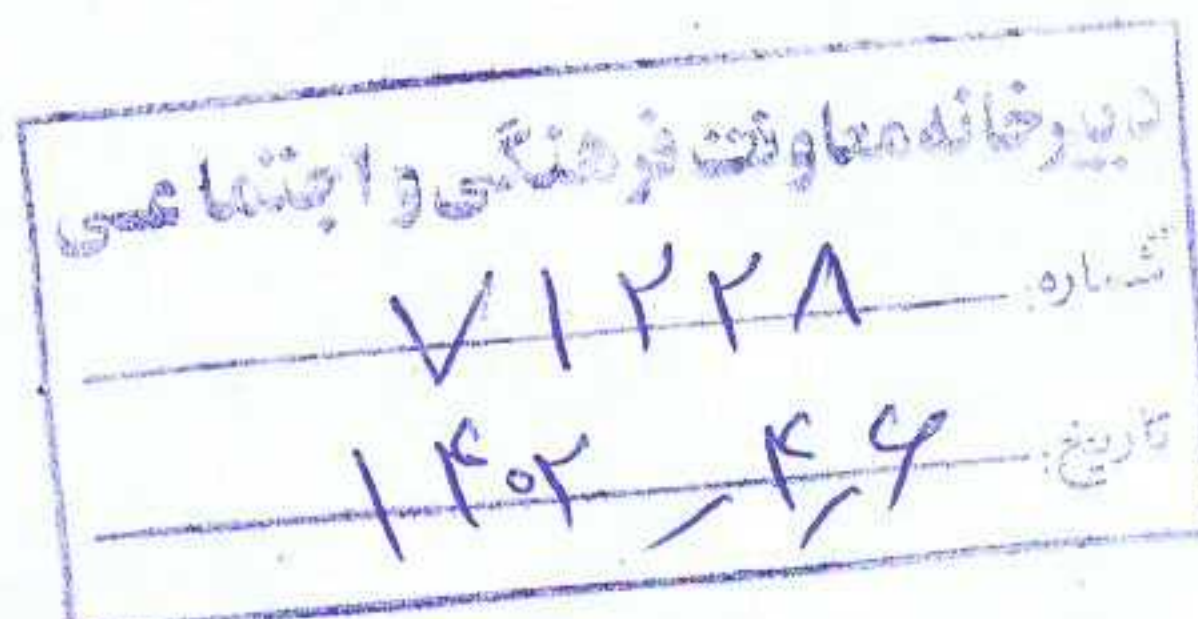 دبیرخانه معاونت فرهنگی و اجتماعی
شماره: ۷۱۲۲۸
تاریخ: ۱۴۰۲/۴/۶